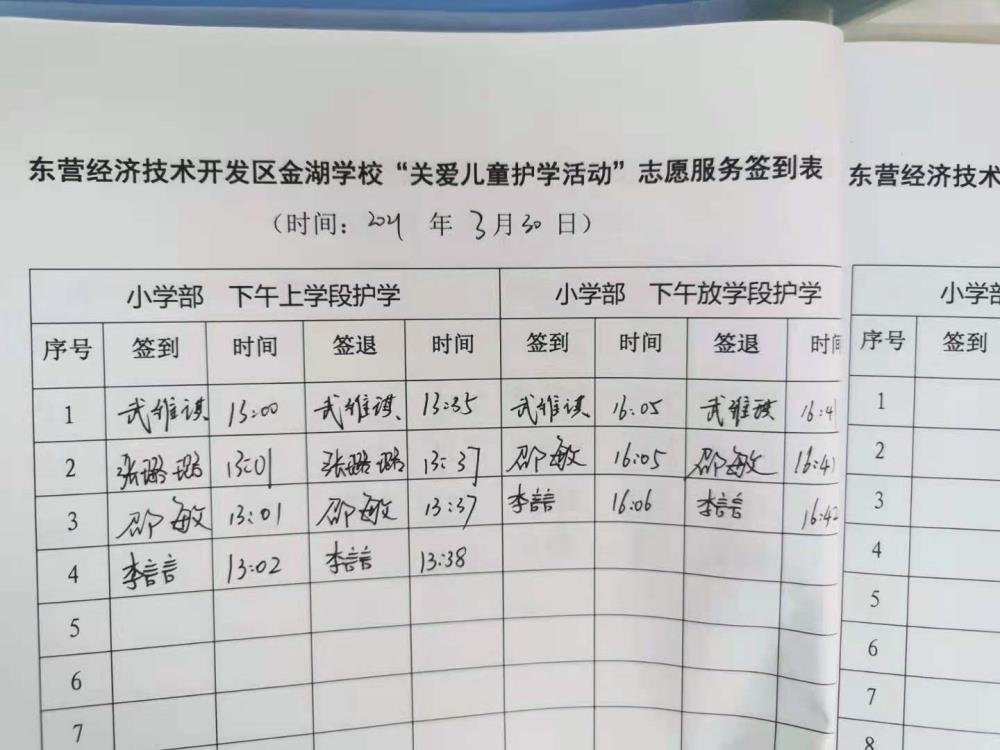 东营经济技术开发区金湖学校“关爱儿童护学活动”志愿服务签到表
东营经济技术
（时间：2021 年 3月30 日）
小学部 下午上学段护学 小学部 下午放学段护学
小学部
序号 签到 时间 签退 时间 签到 时间 签退 时间
序号 签到
1 武维琪 13:00 武维琪 13:35 武维琪 16:05 武维琪 16:41
1
2 张璐璐 13:01 张璐璐 13:37 邵敏 16:05 邵敏 16:41
2
3 邵敏 13:01 邵敏 13:37 李言言 16:06 李言言 16:42
3
4 李言言 13:02 李言言 13:38
4
5
5
6
6
7
7
8